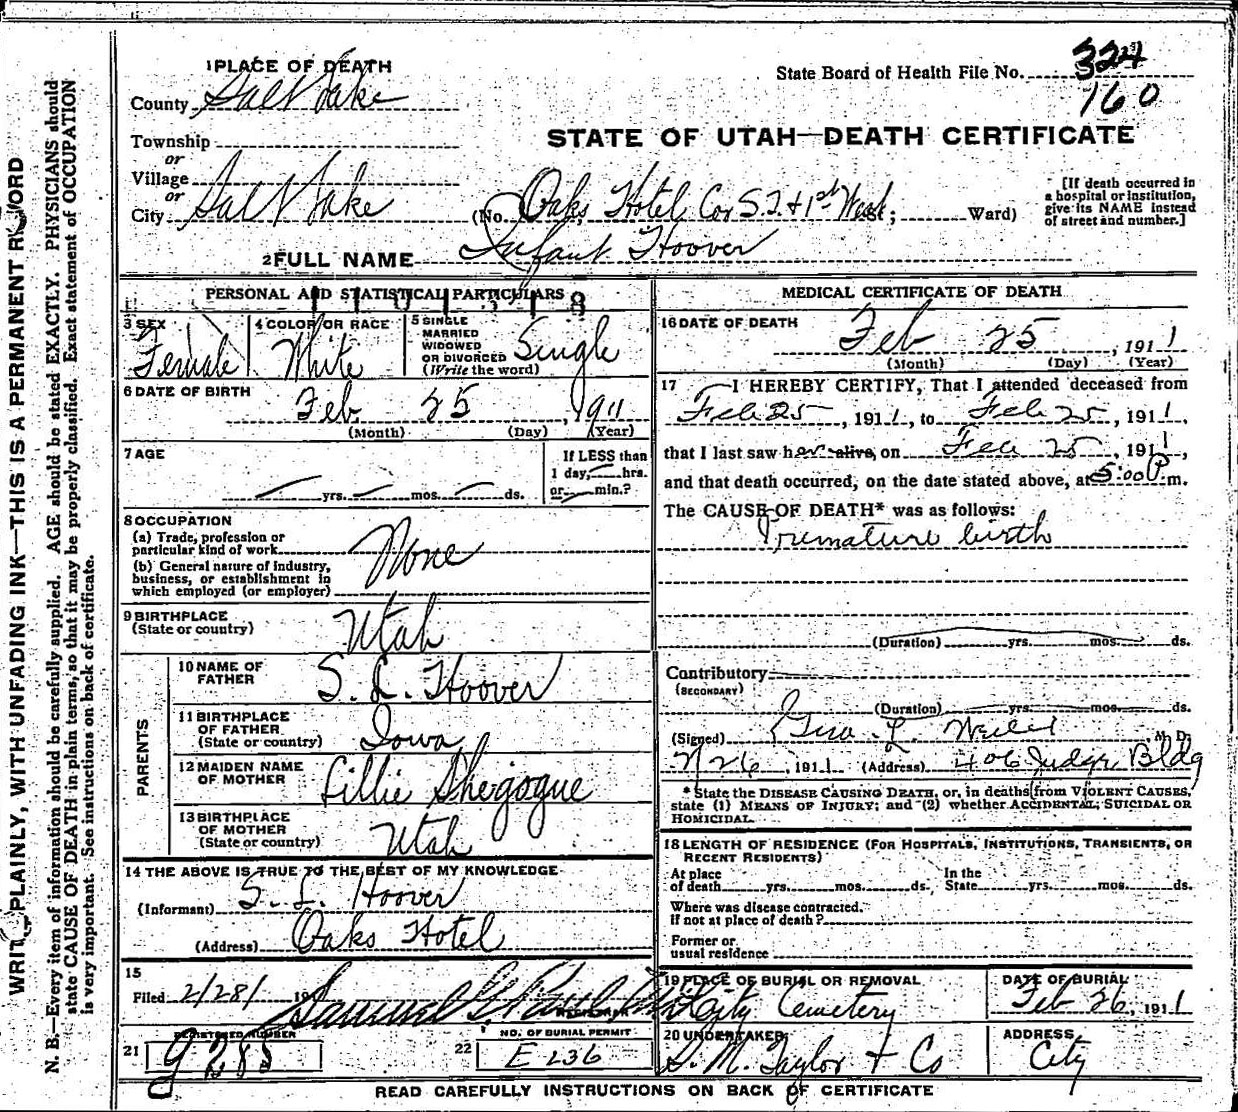 1 PLACE OF DEATH
County Salt Lake
Township
or
Village
or
City Salt Lake
State Board of Health File No. 324
160
STATE OF UTAH—DEATH CERTIFICATE
(No. Oaks Hotel Cor S.T. & 1st West; Ward)
[If death occurred in a hospital or institution, give its NAME instead of street and number.]
2 FULL NAME Infant Hoover
PERSONAL AND STATISTICAL PARTICULARS
3 SEX Female
4 COLOR OR RACE White
5 SINGLE MARRIED WIDOWED OR DIVORCED (Write the word) Single
6 DATE OF BIRTH Feb 25, 1911
(Month) (Day) (Year)
7 AGE
yrs. mos. ds.
If LESS than 1 day, hrs. or min.?
8 OCCUPATION
(a) Trade, profession or particular kind of work
None
(b) General nature of industry, business, or establishment in which employed (or employer)
9 BIRTHPLACE (State or country) Utah
PARENTS
10 NAME OF FATHER S. L. Hoover
11 BIRTHPLACE OF FATHER (State or country) Iowa
12 MAIDEN NAME OF MOTHER Lillie Shegogue
13 BIRTHPLACE OF MOTHER (State or country) Utah
14 THE ABOVE IS TRUE TO THE BEST OF MY KNOWLEDGE
(Informant) S. L. Hoover
(Address) Oaks Hotel
15
Filed 2/28/ 19 Samuel G. Paul
REGISTRAR
21 REGISTERED NUMBER G 285
22 NO. OF BURIAL PERMIT E 236
MEDICAL CERTIFICATE OF DEATH
16 DATE OF DEATH
Feb 25, 1911
(Month) (Day) (Year)
17 I HEREBY CERTIFY, That I attended deceased from
Feb 25, 1911, to Feb 25, 1911,
that I last saw her alive on Feb 25, 1911,
and that death occurred, on the date stated above, at 5:00 P.m.
The CAUSE OF DEATH* was as follows:
Premature birth
(Duration) yrs. mos. ds.
Contributory
(SECONDARY)
(Duration) yrs. mos. ds.
(Signed) Geo. L. M. D.
2/26, 1911 (Address) 406 Judge Bldg
* State the DISEASE CAUSING DEATH, or, in deaths from VIOLENT CAUSES, state (1) MEANS OF INJURY; and (2) whether ACCIDENTAL, SUICIDAL OR HOMICIDAL.
18 LENGTH OF RESIDENCE (FOR HOSPITALS, INSTITUTIONS, TRANSIENTS, OR RECENT RESIDENTS)
At place of death yrs. mos. ds. In the State yrs. mos. ds.
Where was disease contracted. If not at place of death?
Former or usual residence
19 PLACE OF BURIAL OR REMOVAL City Cemetery
DATE OF BURIAL Feb 26, 1911
20 UNDERTAKER S. M. Taylor & Co
ADDRESS City
READ CAREFULLY INSTRUCTIONS ON BACK OF CERTIFICATE
WRITE PLAINLY, WITH UNFADING INK—THIS IS A PERMANENT RECORD
N. B.—Every item of information should be carefully supplied. AGE should be stated EXACTLY. PHYSICIANS should
state CAUSE OF DEATH in plain terms, so that it may be properly classified. Exact statement of OCCUPATION
is very important. See instructions on back of certificate.